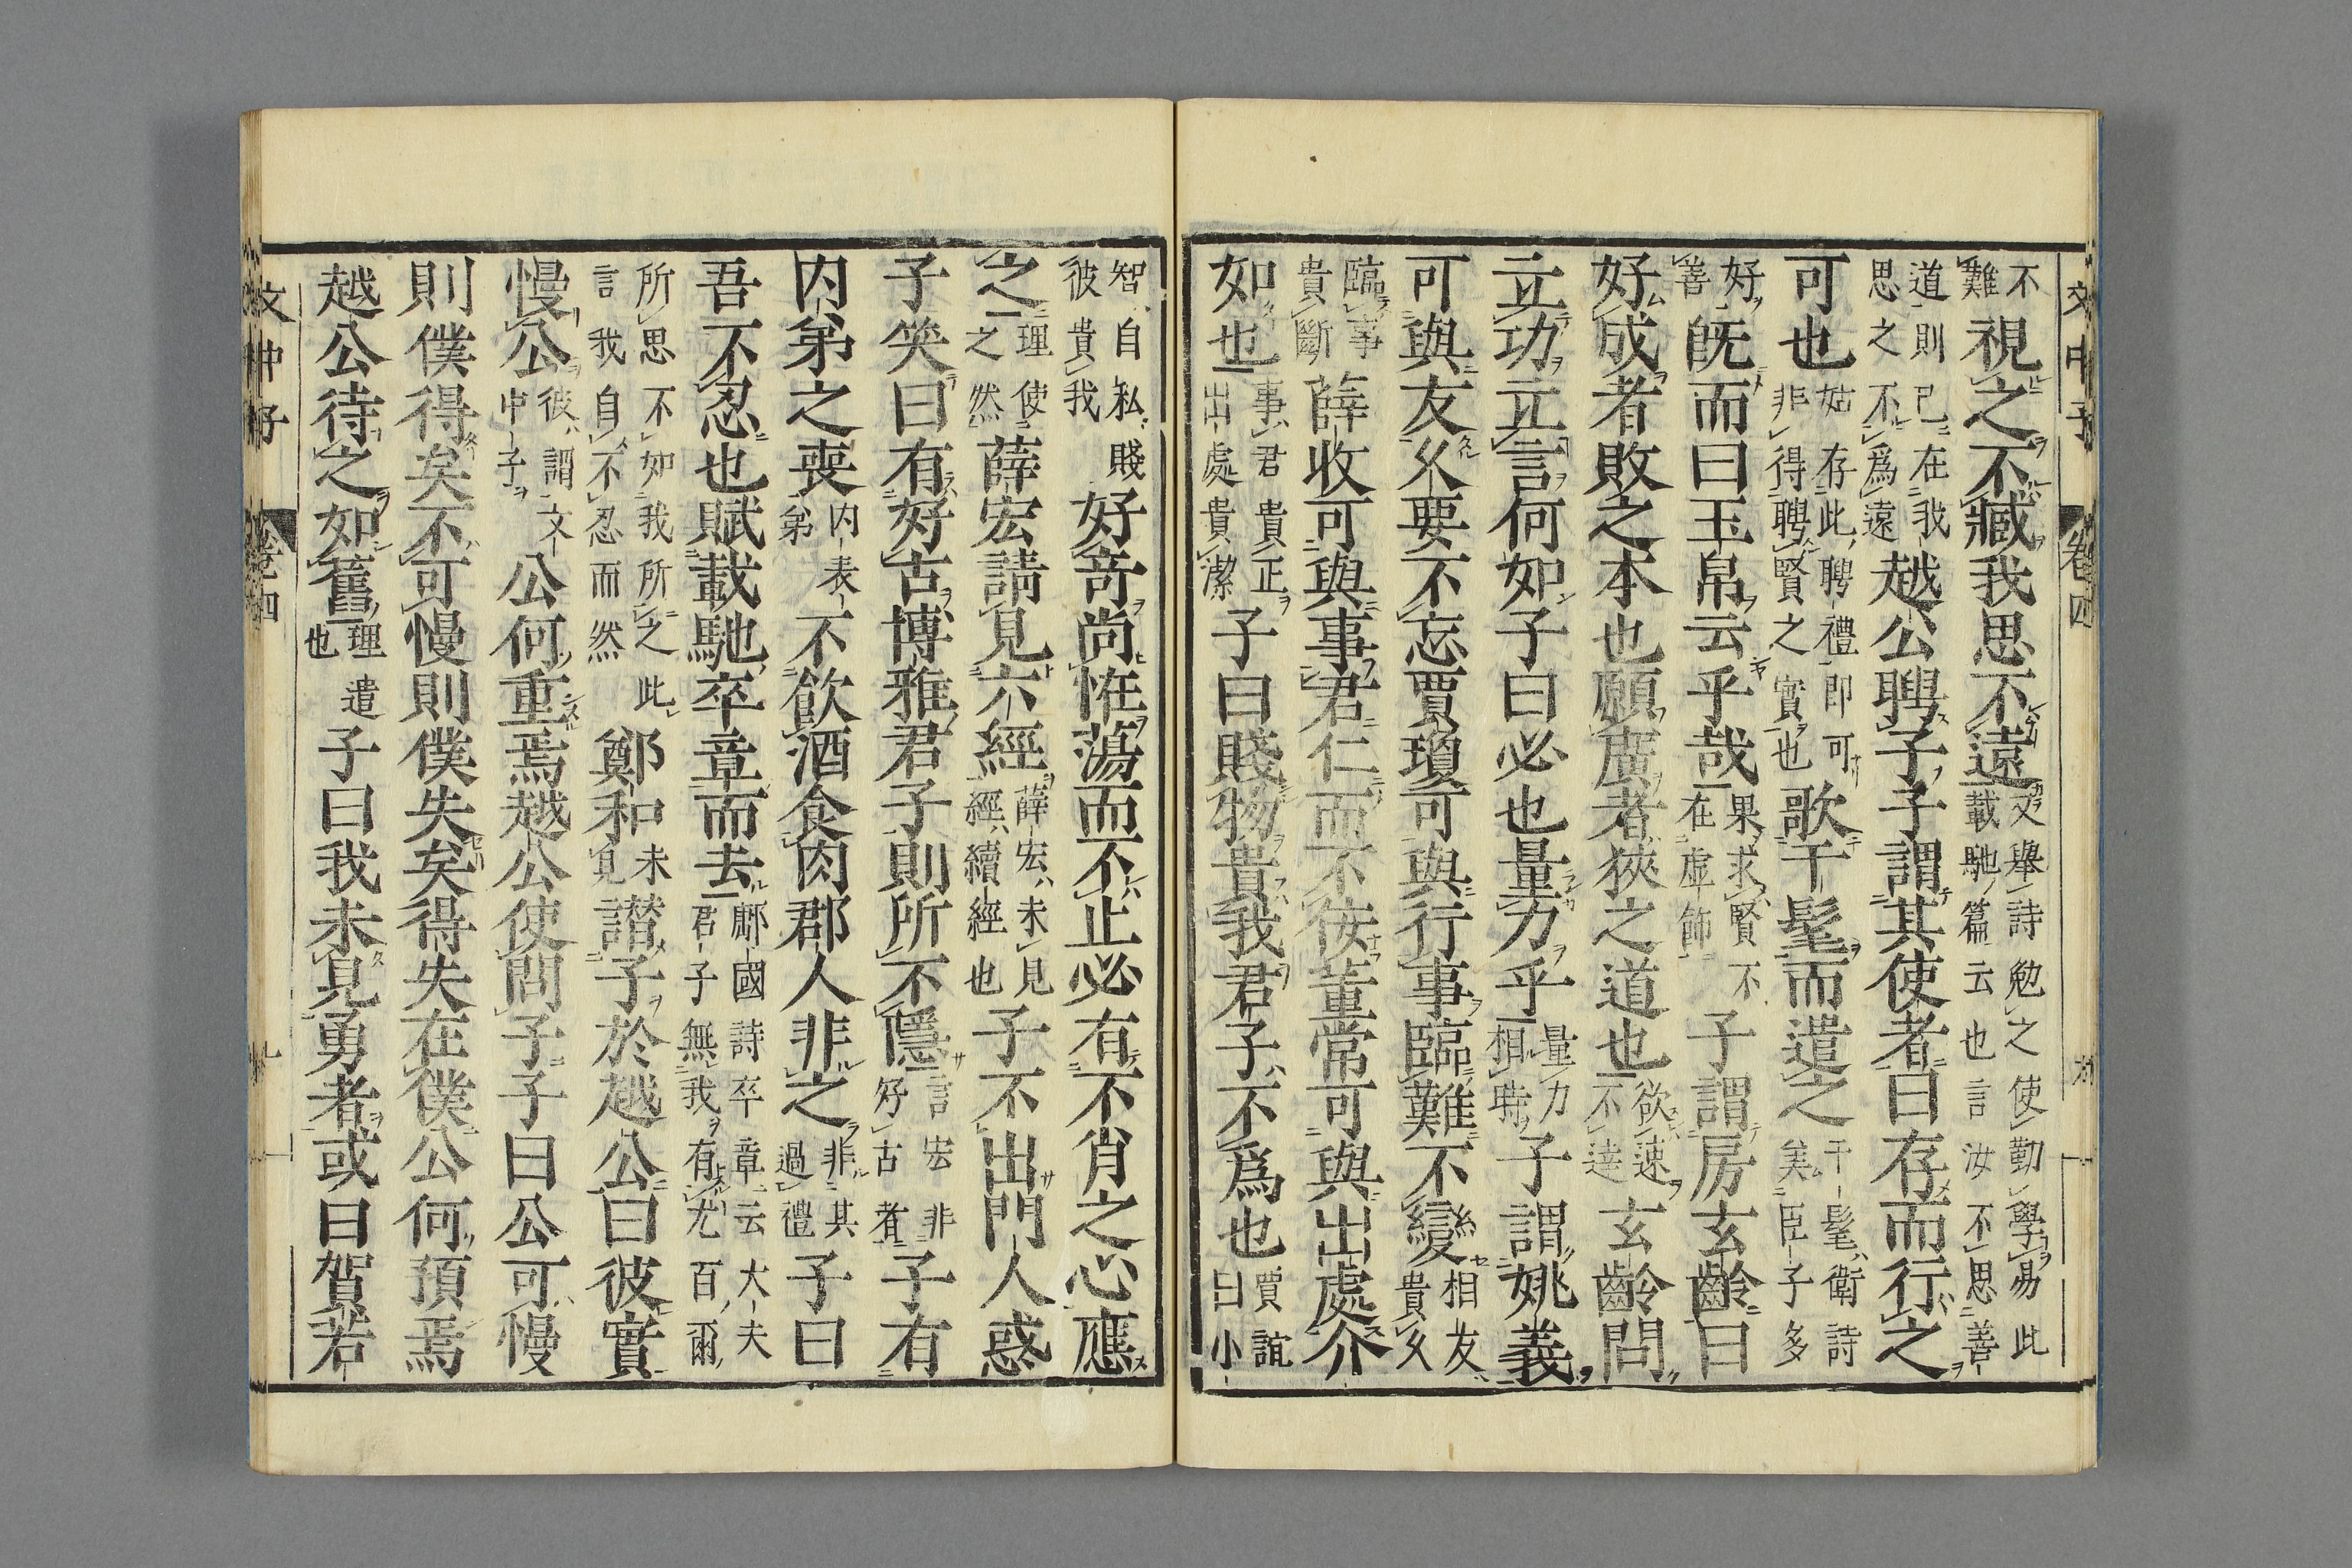 文中子　卷四　六
不難視之不臧我思不遠又舉詩勉之使勤學易此載馳篇云也言汝不思善
道則已在我思之不爲遠越公聘子子謂其使者曰存而行之
可也姑存此聘禮即可非得聘賢之實也歌干髦而遣之干髦衛詩美臣子多
好善既而曰玉帛云乎哉果求賢不在虛飾子謂房玄齡曰
好成者敗之本也願廣者狹之道也欲速不達玄齡問
立功立言何如子曰必也量力乎量力相時子謂姚義
可與友久要不忘賈瓊可與行事臨難不變相友貴久
臨事貴斷薛收可與事君仁而不佞董常可與出處介
如也事君貴正出處貴潔子曰賤物貴我君子不爲也賈誼曰小
智自私賤彼貴我好奇尚恠蕩而不止必有不肖之心應
之理使之然薛宏請見六經薛宏未見經續經也子不出門人惑
子笑曰有好古博雅君子則所不隱言宏非好古者子有
内弟之喪内表弟不飲酒食肉郡人非之非其過禮子曰
吾不忍也賦載馳卒章而去鄘國詩卒章云大夫君子無我有尤百爾
所思不如我所之此言我自不忍而然鄭和未見譛子於越公曰彼實
慢公彼謂文中子公何重焉越公使問子子曰公可慢
則僕得矣不可慢則僕失矣得失在僕公何預焉
越公待之如舊理遣也子曰我未見勇者或曰賀若
文中子　卷四　七